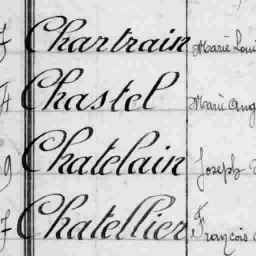 Chartrain Marie Loui
Chastel Marie Ang
9 Chatelain Joseph
Chatellier François